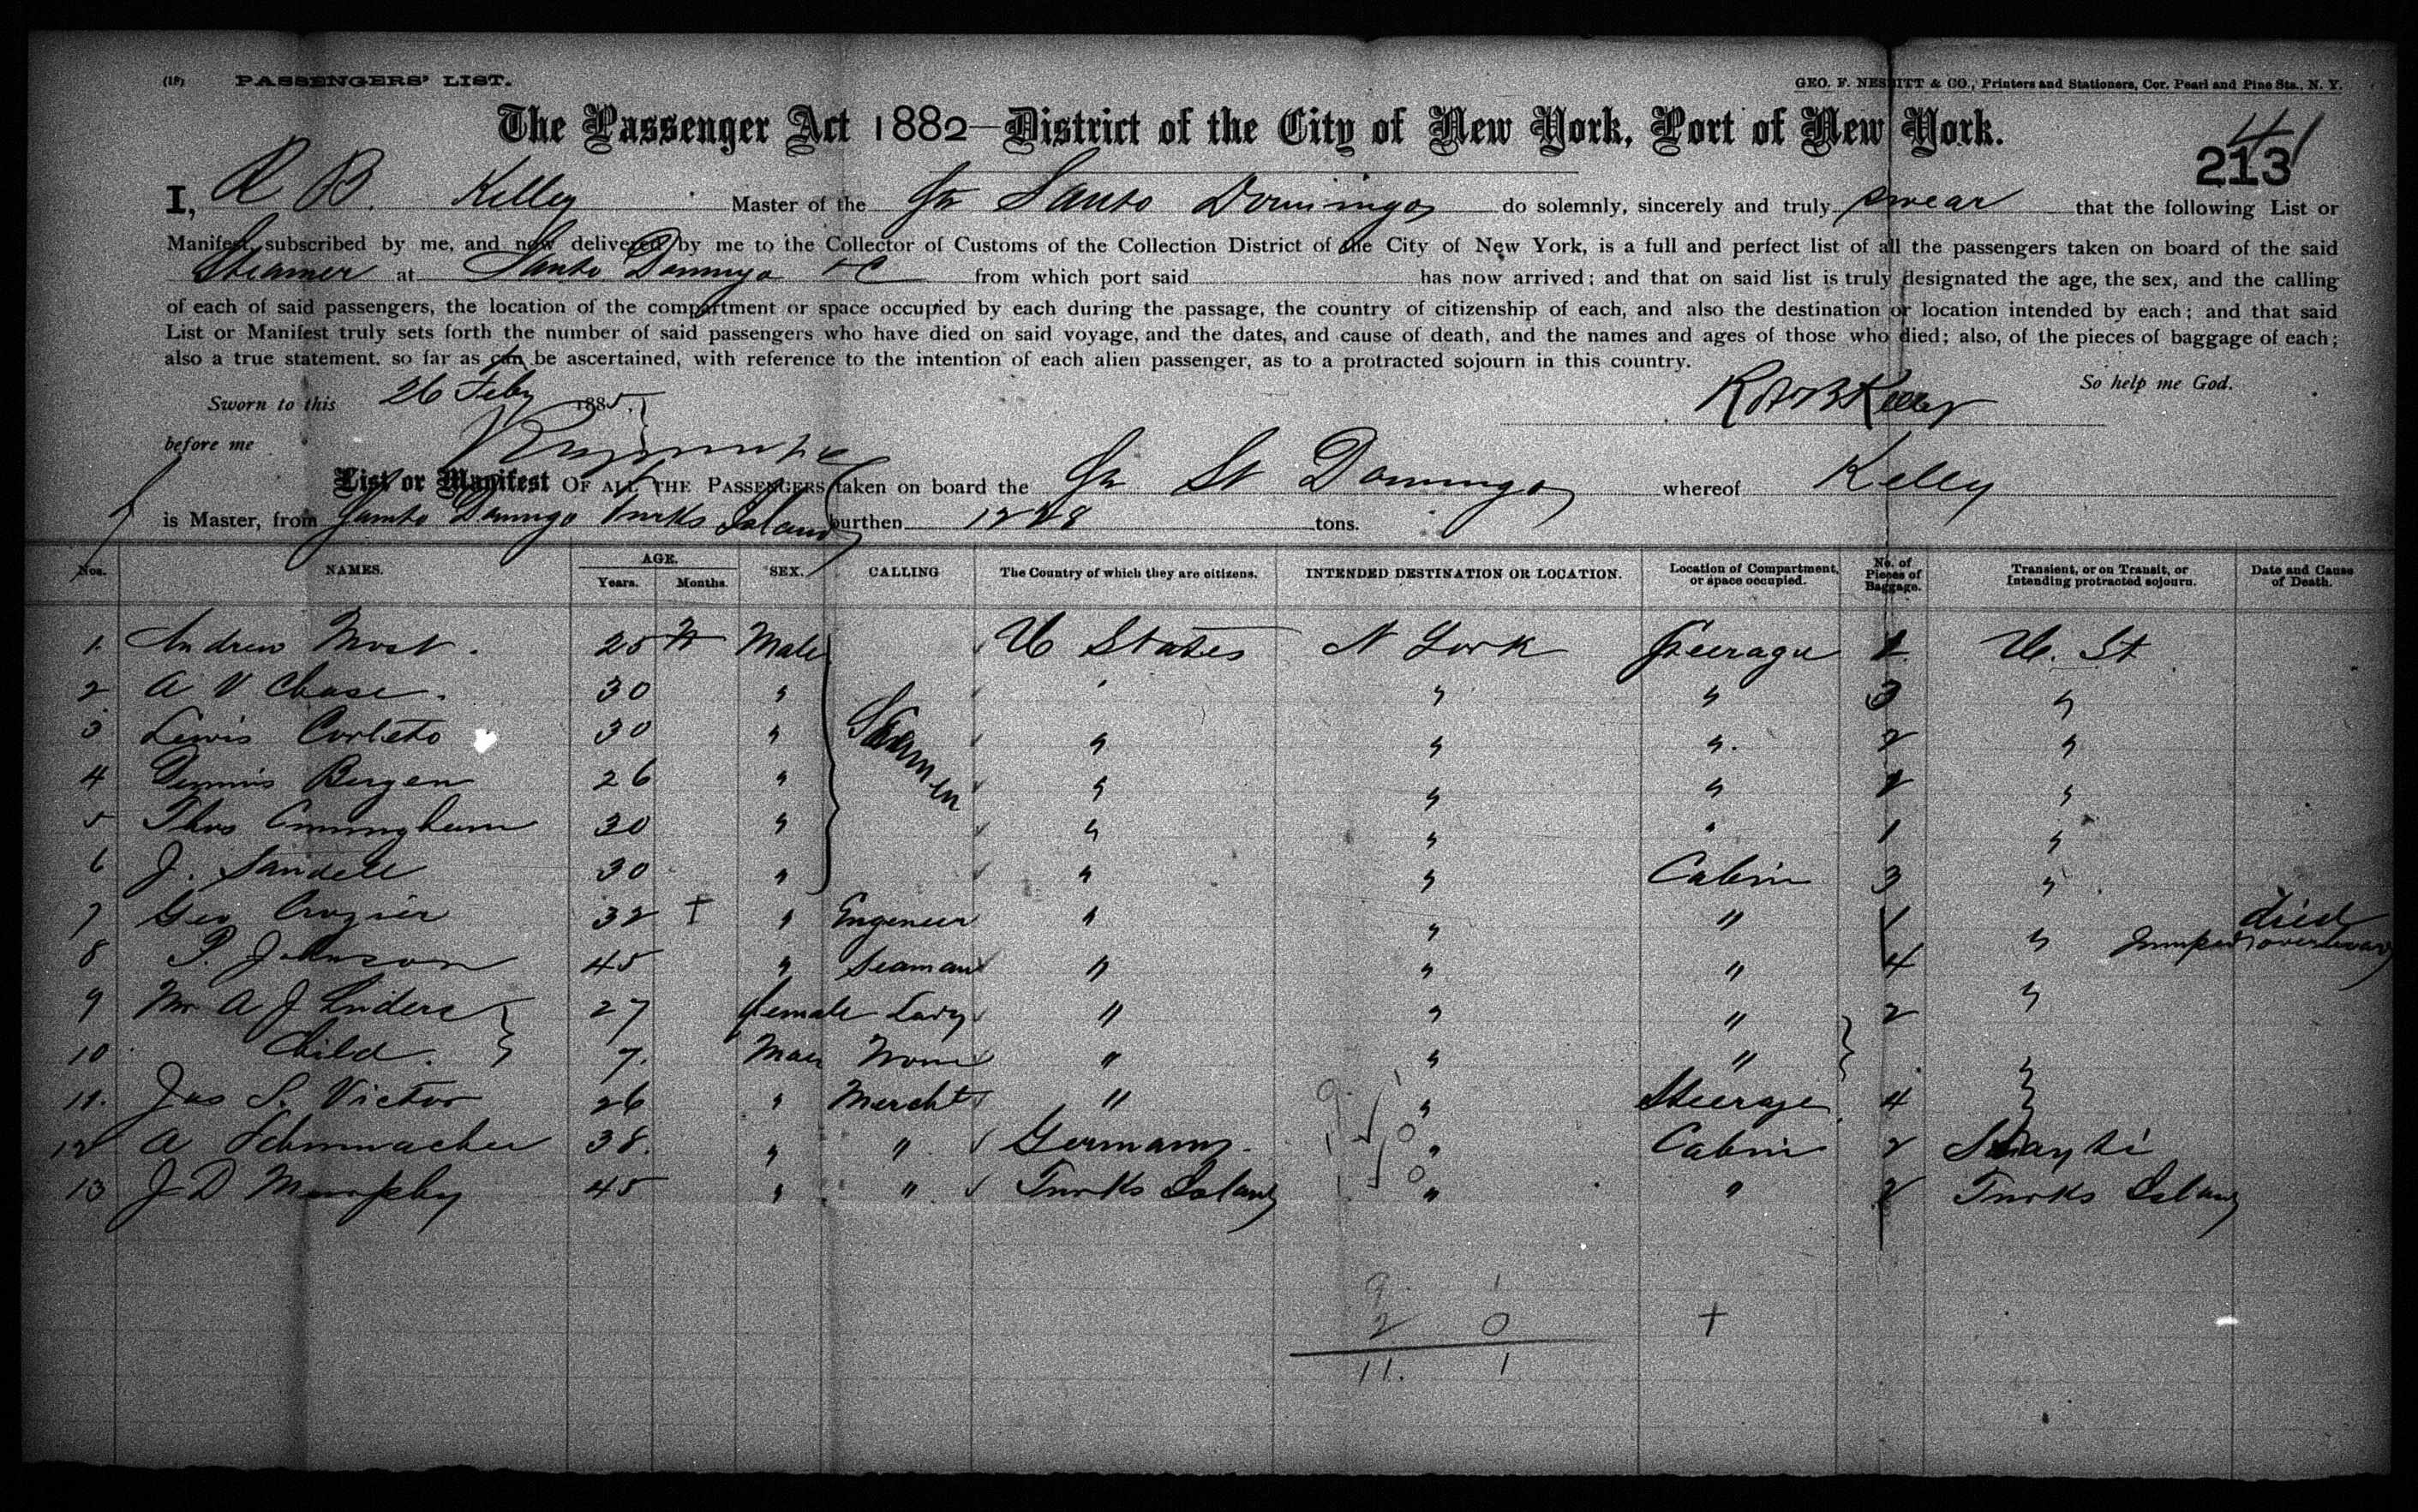 (18) PASSENGERS' LIST.
GEO. F. NESBITT & CO., Printers and Stationers, Cor. Pearl and Pine Sts., N. Y.
The Passenger Act 1882—District of the City of New York, Port of New York.
41
213
I, R B. Kelley Master of the Str Santo Domingo do solemnly, sincerely and truly swear that the following List or
Manifest, subscribed by me, and now delivered by me to the Collector of Customs of the Collection District of the City of New York, is a full and perfect list of all the passengers taken on board of the said
Steamer at Santo Domingo &C from which port said has now arrived; and that on said list is truly designated the age, the sex, and the calling
of each of said passengers, the location of the compartment or space occupied by each during the passage, the country of citizenship of each, and also the destination or location intended by each; and that said
List or Manifest truly sets forth the number of said passengers who have died on said voyage, and the dates, and cause of death, and the names and ages of those who died; also, of the pieces of baggage of each;
also a true statement, so far as can be ascertained, with reference to the intention of each alien passenger, as to a protracted sojourn in this country.
So help me God.
Sworn to this 26 Feby 1885
Kelley
before me
List or Manifest OF ALL THE PASSENGERS taken on board the Str St Domingo whereof Kelly
is Master, from Santo Domingo Turks Island burthen tons.
Nos. NAMES. AGE. Years. Months. SEX. CALLING The Country of which they are citizens. INTENDED DESTINATION OR LOCATION. Location of Compartment, or space occupied. No. of Pieces of Baggage. Transient, or on Transit, or Intending protracted sojourn. Date and Cause of Death.
1. Andrew Most. 25 Male U States N York Steerage 1 U. St
2 A V Chase. 30 " " " " 3 "
3 Lewis Corleto 30 " Seamen " " " 2 "
4 Dennis Bergen 26 " " " " "
5 Thos Cunningham 30 " " " " 1 "
6 J. Sandell 30 " " " Cabin 3 "
7 Geo Crozier 32 + " Engeneer " " " 1 " died Jumped overboard
8 P. Johnson 45 " Seaman " " " 4 "
9 A J Linders 27 female Lady " " " 2 "
10 Child. 7. Male None " " " "
11. Jas S. Victor 26 " Mercht " " Steerage 4 "
12 A Schumacher 38. " " Germany " Cabin 2 Hayti
13 J D Murphy 45 " " Turks Island " " 2 Turks Island
9 1
2 0 +
11. 1